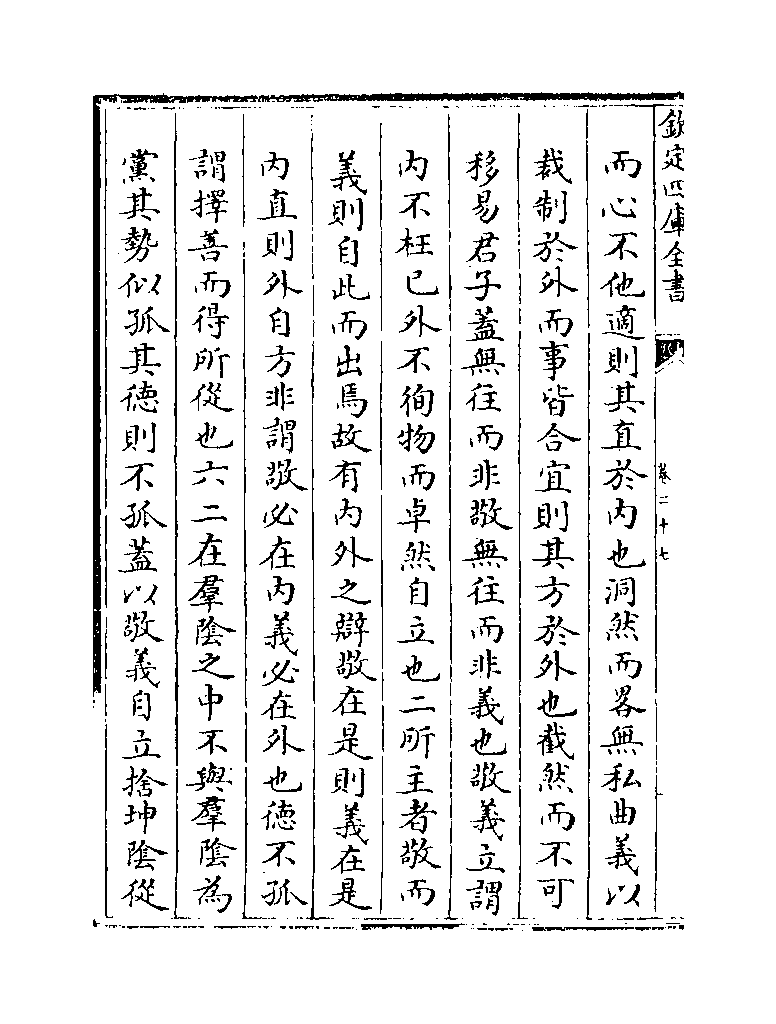 欽定四庫全書
卷二十七
而心不他適則其直於内也洞然而畧無私曲義以
裁制於外而事皆合宜則其方於外也截然而不可
移易君子蓋無往而非敬無往而非義也敬義立謂
内不枉已外不徇物而卓然自立也二所主者敬而
義則自此而出焉故有内外之辯敬在是則義在是
内直則外自方非謂敬必在内義必在外也德不孤
謂擇善而得所從也六二在羣隂之中不與羣隂為
黨其勢似孤其德則不孤蓋以敬義自立捨坤隂從